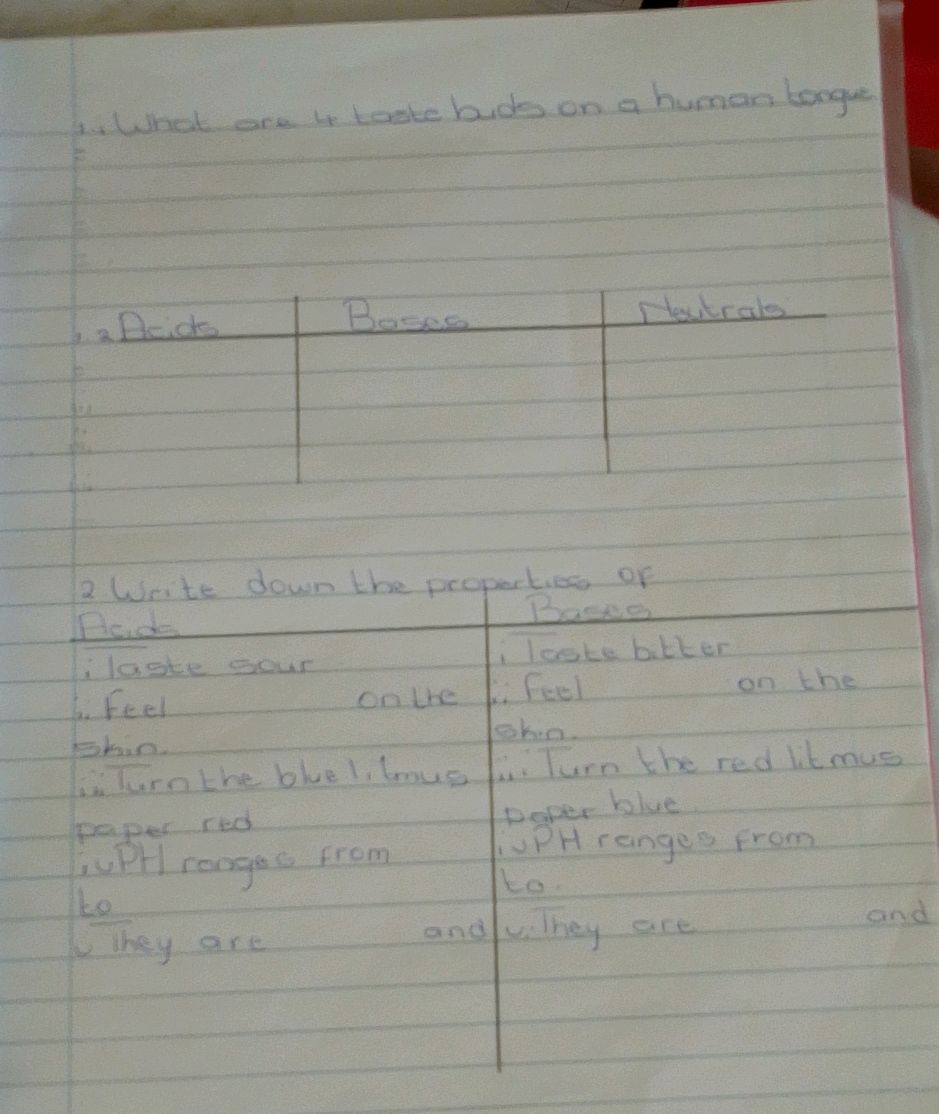 1.1 What are 4 taste buds on a human tongue
1.2 Acids Bases Neutrals
2 Write down the properties of
Acids Bases
i Taste sour
ii Feel on the
skin.
iii Turn the blue litmus
paper red
iv PH ranges from
to
v They are and
i Taste bitter
ii Feel on the
skin.
iii Turn the red litmus
paper blue
iv PH ranges from
to.
v. They are and